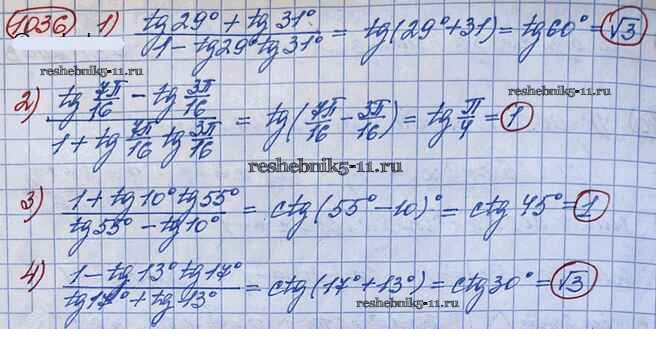 1036. 1) (tg 29° + tg 31°) / (1 - tg 29° tg 31°) = tg (29° + 31) = tg 60° = √3
reshebnik5-11.ru
2) (tg 7π/16 - tg 3π/16) / (1 + tg 7π/16 tg 3π/16) = tg (7π/16 - 3π/16) = tg π/4 = 1
reshebnik5-11.ru
3) (1 + tg 10° tg 55°) / (tg 55° - tg 10°) = ctg (55° - 10)° = ctg 45° = 1
4) (1 - tg 13° tg 17°) / (tg 17° + tg 13°) = ctg (17° + 13°) = ctg 30° = √3
reshebnik5-11.ru
reshebnik5-11.ru